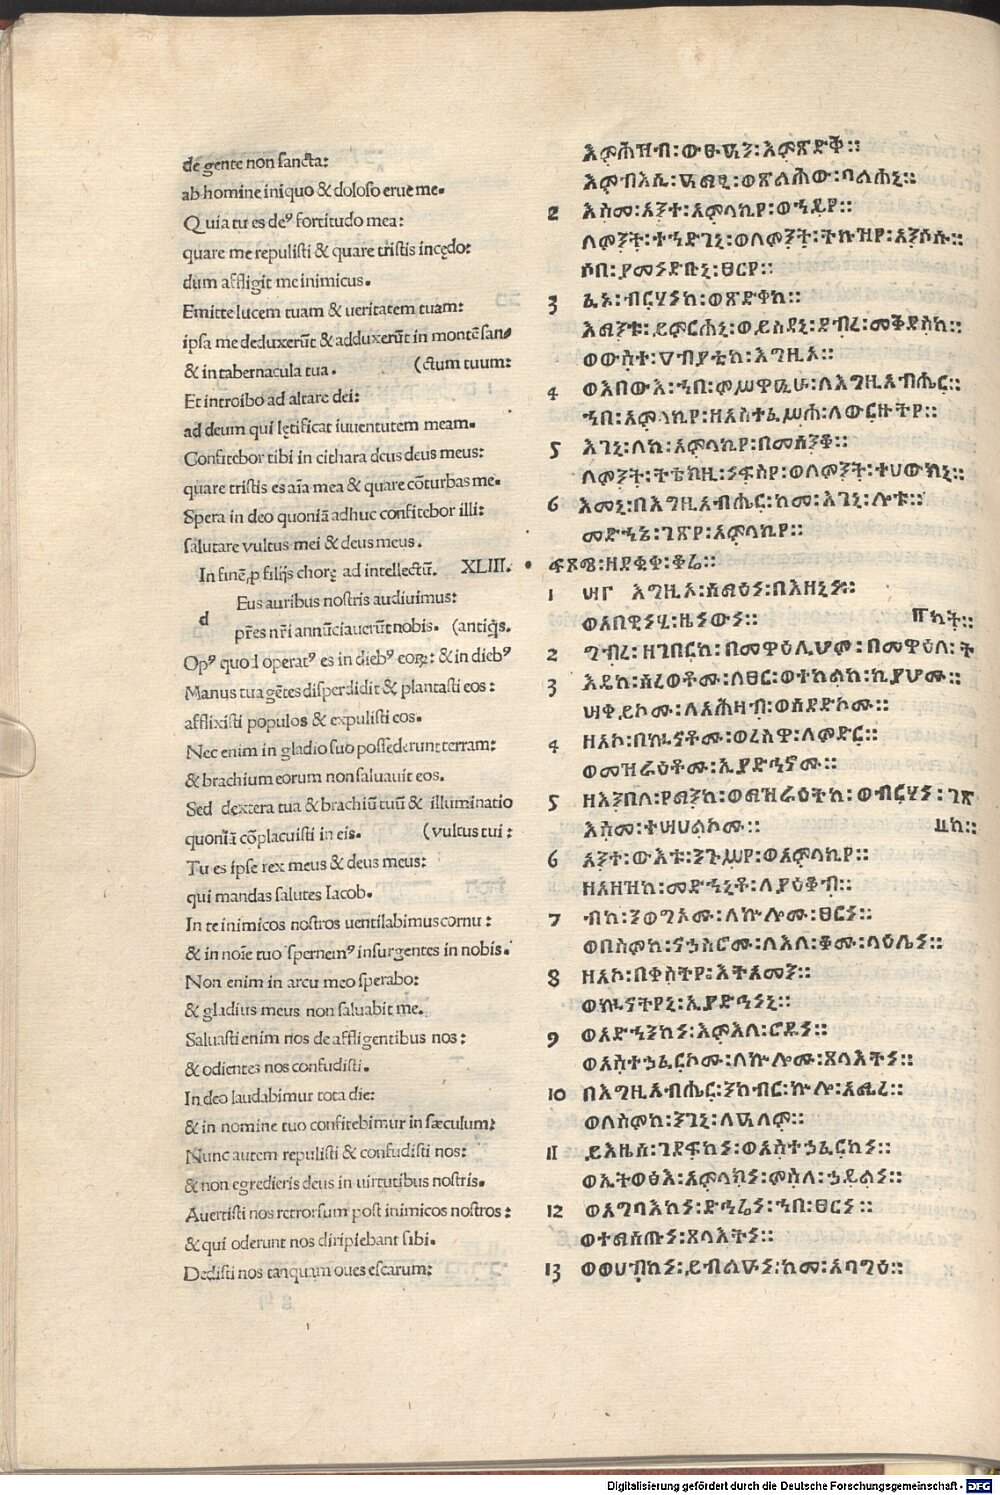 de gente non sancta:
ab homine iniquo & doloso erue me.
Quia tu es deꝰ fortitudo mea:
quare me repulisti & quare tristis incędo:
dum affligit me inimicus.
Emitte lucem tuam & ueritatem tuam:
ipsa me deduxerūt & adduxerūt in montē san⸗
& in tabernacula tua. (ctum tuum:
Et introibo ad altare dei:
ad deum qui lętificat iuuentutem meam.
Confitebor tibi in cithara deus deus meus:
quare tristis es aīa mea & quare cōturbas me.
Spera in deo quoniā adhuc confitebor illi:
salutare vultus mei & deus meus.
In finē, p filijs chorę ad intellectū. XLIII.
d Eus auribus nostris audiuimus:
pr̄es nr̄i annūciauerūt nobis. (antiq̄s.
Opꝰ quod operatꝰ es in diebꝰ eoꝝ: & in diebꝰ
Manus tua gētes disperdidit & plantasti eos:
afflixisti populos & expulisti eos.
Nec enim in gladio suo possederunt terram:
& brachium eorum non saluauit eos.
Sed dextera tua & brachiū tuū & illuminatio
quoniā cōplacuisti in eis. (vultus tui:
Tu es ipse rex meus & deus meus:
qui mandas salutes Iacob.
In te inimicos nostros uentilabimus cornu:
& in noīe tuo spernemꝰ insurgentes in nobis.
Non enim in arcu meo sperabo:
& gladius meus non saluabit me.
Saluasti enim nos de affligentibus nos:
& odientes nos confudisti.
In deo laudabimur tota die:
& in nomine tuo confitebimur in sæculum:
Nunc autem repulisti & confudisti nos:
& non egredieris deus in uirtutibus nostris.
Auertisti nos retrorsum post inimicos nostros:
& qui oderunt nos diripiebant sibi.
Dedisti nos tanquam oues escarum:
እምሕዝብ፡ውፁዓን፡እምጽድቅ።
እምብእሲ፡ዓማፂ፡ወጽልሕው፡ባልሐኒ።
2 እስመ፡አንተ፡አምላኪየ፡ወኀይልየ።
ለምንት፡ተኀድገኒ፡ወለምንት፡ትኬዝየ፡አንሶሱ።
ሶበ፡ያመነድቡኒ፡ፀርየ።
3 ፈኑ፡ብርሃነከ፡ወጽድቀከ።
እማንቱ፡ይምርሐኒ፡ወይስደኒ፡ደብረ፡መቅደስከ።
ወውስተ፡ዐብያቲከ፡እግዚአ።
4 ወእበውእ፡ኀበ፡ምሥዋዒሁ፡ለእግዚአብሔር።
ኀበ፡አምላኪየ፡ዘአስተፈሥሐ፡ለውርዙትየ።
5 እገኒ፡ለከ፡አምላኪየ፡በመሰንቆ።
ለምንት፡ትቴክዚ፡ነፍስየ፡ወለምንት፡ተሀውክኒ።
6 እመኒ፡በእግዚአብሔር፡ከመ፡እገኒ፡ሎቱ።
መድኀኔ፡ገጽየ፡አምላኪየ።
ፍጻሜ፡ዘደቂቀ፡ቆሬ።
1 ፵፫ እግዚኦ፡ሰማዕነ፡በእዘኒነ።
ወአበዊነሂ፡ዜነውነ። ዊከት።
2 ግብረ፡ዘገበርከ፡በመዋዕሊሆሙ፡በመዋዕለ፡ት
3 እዴከ፡ሠረወቶሙ፡ለፀር፡ወተከልከ፡ኪያሆሙ።
ሣቀይኮሙ፡ለአሕዛብ፡ወሰደድኮሙ።
4 ዘአኮ፡በኲናቶሙ፡ወረስዋ፡ለምድር።
ወመዝራዕቶሙ፡ኢያድኀኖሙ።
5 ዘእንበለ፡የማንከ፡ወመዝራዕትከ፡ወብርሃነ፡ገጽ
እስመ፡ተሣሀልኮሙ። ዚከ።
6 አንተ፡ውእቱ፡ንጉሥየ፡ወአምላኪየ።
ዘአዘዝከ፡መድኀኒቶ፡ለያዕቆብ።
7 ብከ፡ንወግኦሙ፡ለኲሎሙ፡ፀርነ።
ወበስምከ፡ናኀስሮሙ፡ለእለ፡ቆሙ፡ላዕሌነ።
8 ዘአኮ፡በቀስትየ፡እትአመን።
ወኲናትየኒ፡ኢያድኅነኒ።
9 ወአድኀንከነ፡እምእለ፡ሮዱነ።
ወአስተኃፈርኮሙ፡ለኲሎሙ፡ጸላእትነ።
10 በእግዚአብሔር፡ንከብር፡ኲሎ፡አሚረ።
ወለስምከ፡ንገኒ፡ለዓለም።
11 ይእዜሰ፡ገደፍከነ፡ወአስተኃፈርከነ።
ወኢትወፅእ፡አምላክነ፡ምስለ፡ኃይልነ።
12 ወአግባእከነ፡ድኅሬነ፡ኀበ፡ፀርነ።
ወተማሰጡነ፡ጸላእትነ።
13 ወወሀብከነ፡ይብልዑነ፡ከመ፡አባግዕ።
Digitalisierung gefördert durch die Deutsche Forschungsgemeinschaft - DFG